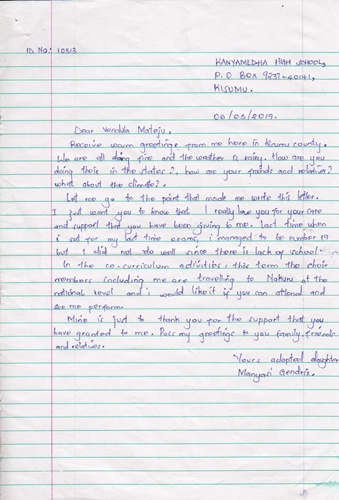 ID No: 10813
KANYAMEDHA HIGH SCHOOL,
P.O BOX 9237-40141,
KISUMU.
06/03/2019.
Dear Vendula Mateju,
Receive warm greetings from me here in Kisumu county.
We are all doing fine and the weather is rainy. How are you
doing there in the states?, how are your friends and relatives?
what about the climate?.
Let me go to the point that made me write this letter.
I just want you to know that I really love you for your care
and support that you have been giving to me. Last time when
i sat for my last time exams, i managed to be number 19
but I did not do well since there is lack of school-
In the co-curriculum activities, this term the choir
members including me are travelling to Nakuru at the
national level and i would like it if you can attend and
see me perform.
Mine is just to thank you for the support that you
have granted to me. Pass my greetings to you family, friends
and relatives.
Yours adopted daughter
Manyasi